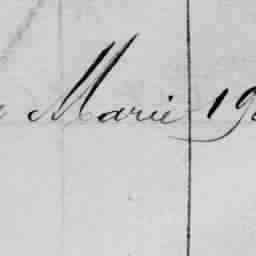 Marie 19